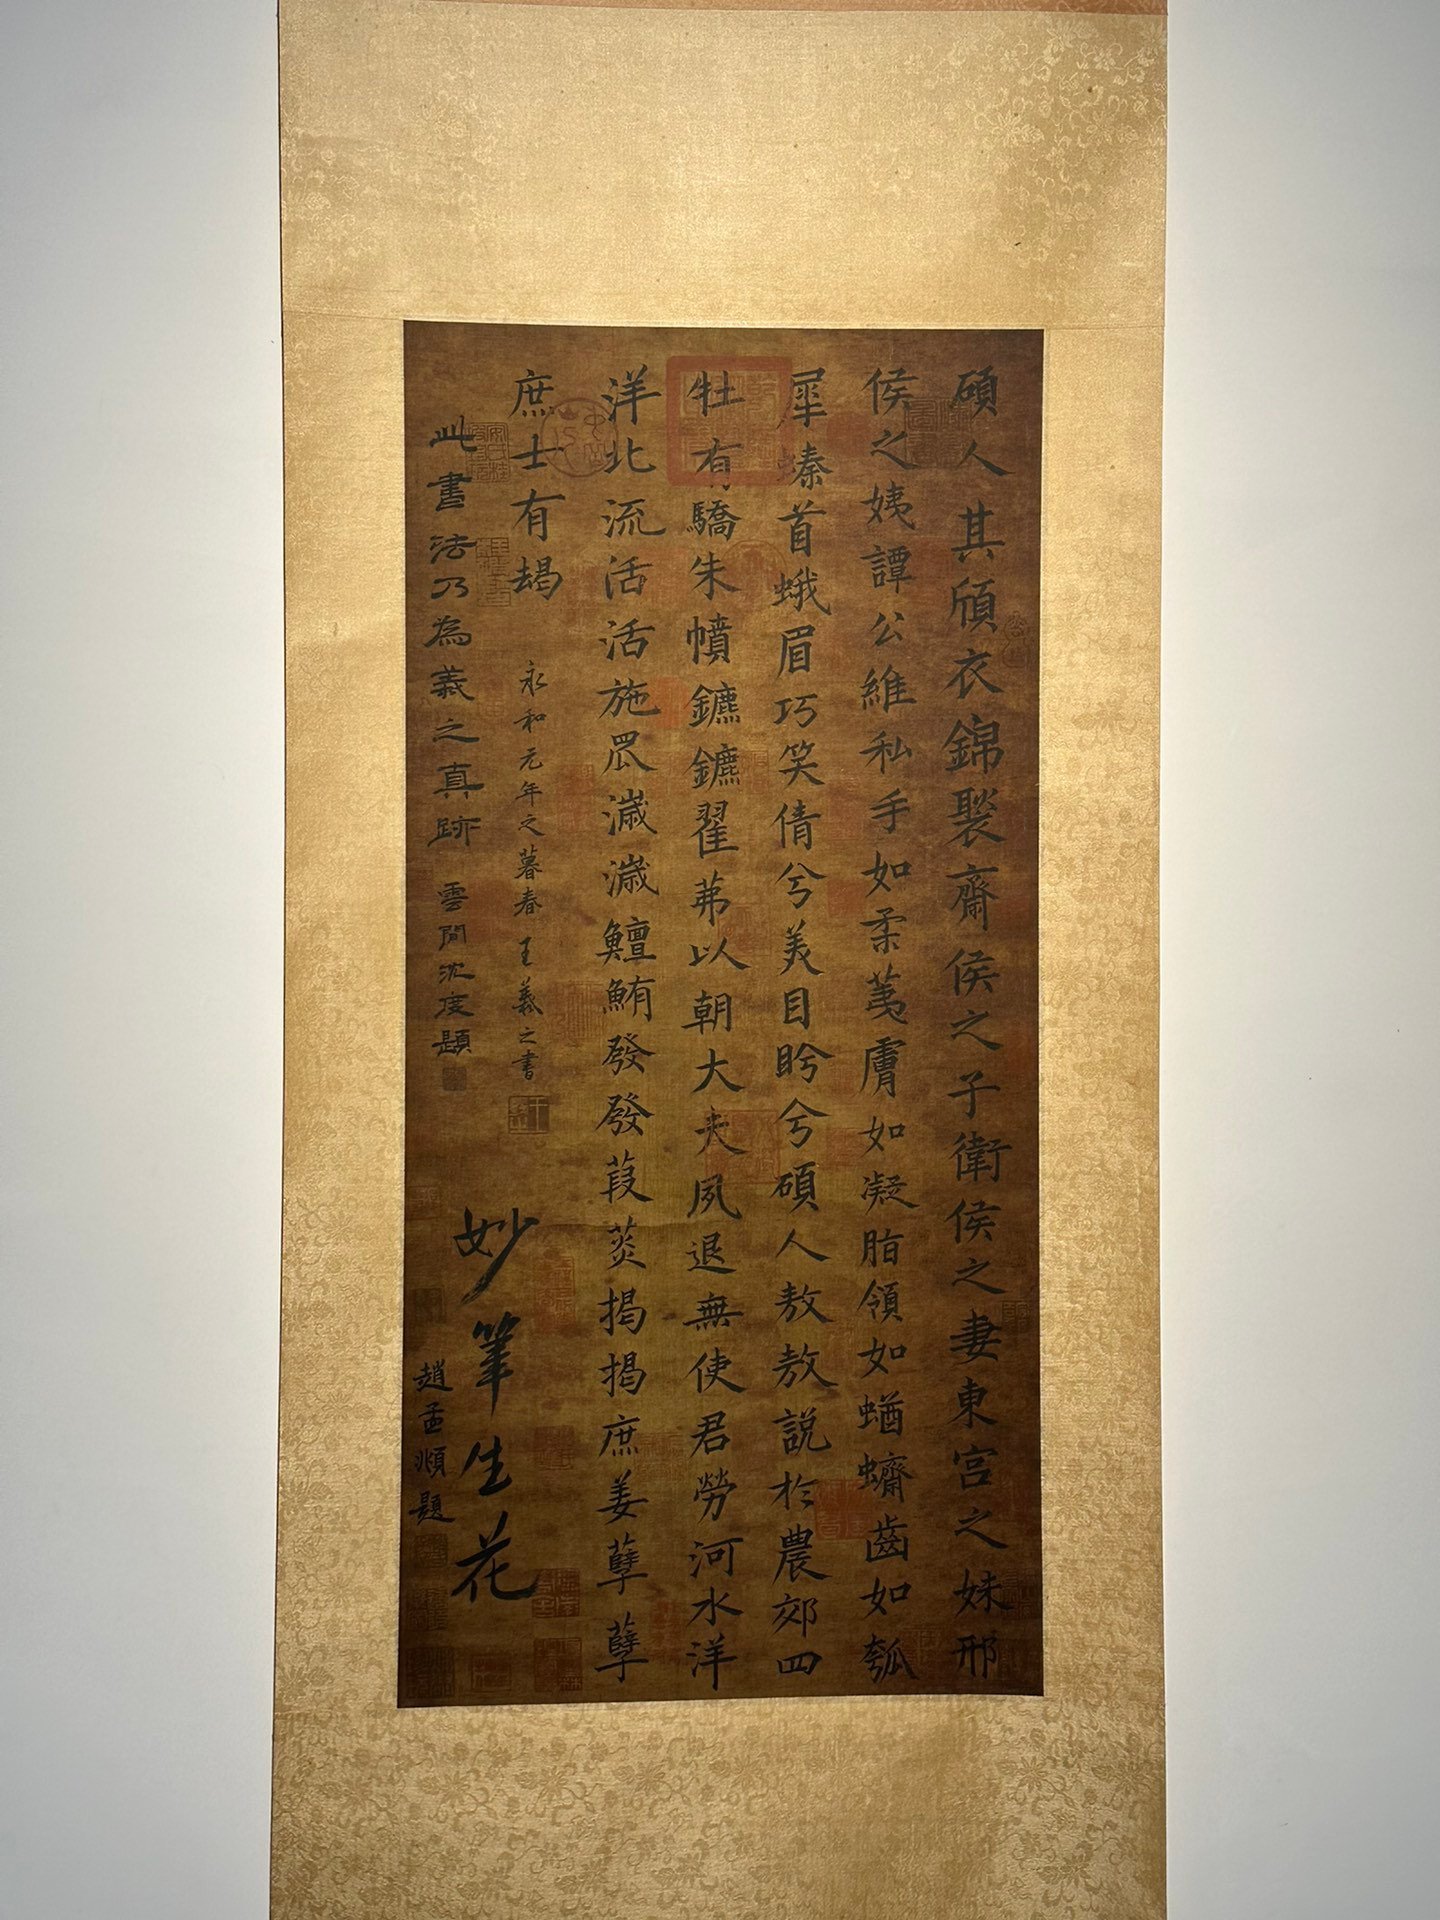 碩人其頎衣錦褧齋侯之子衛侯之妻東宮之妹邢
侯之姨譚公維私手如柔荑膚如凝脂領如蝤蠐齒如瓠
犀螓首蛾眉巧笑倩兮美目盻兮碩人敖敖說於農郊四
牡有驕朱幩鑣鑣翟茀以朝大夫夙退無使君勞河水洋
洋北流活活施罛濊濊鱣鮪發發葭菼揭揭庶姜孽孽
庶士有朅
永和元年之暮春王羲之書
此書法乃為義之真跡 雲間沈度題
妙筆生花
趙孟順題